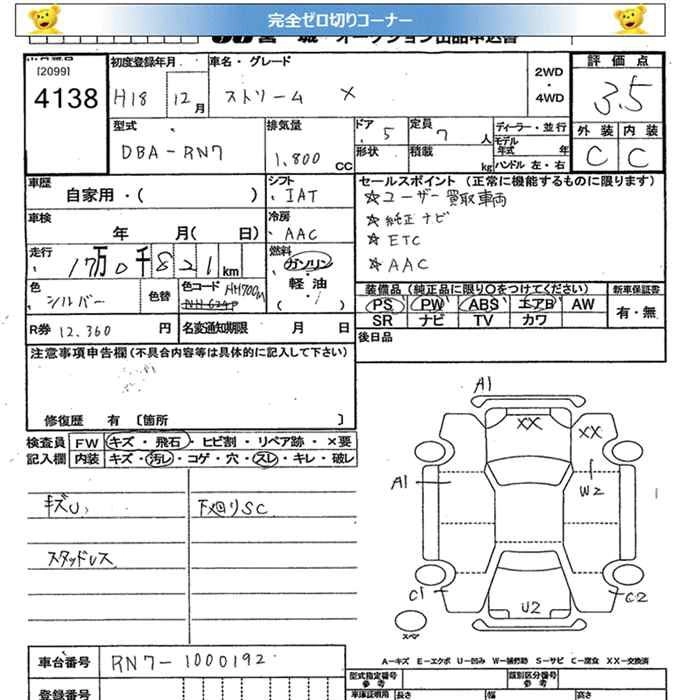 完全ゼロ切りコーナー
オークション出品申込書
[2099]
4138
初度登録年月
H18 12月
車名・グレード
ストリーム X
2WD
・
4WD
評価点
3.5
型式
DBA-RN7
排気量
1,800 CC
ドア 5
形状
定員 7 人
積載 kg
ディーラー・並行
モデル年式 年
ハンドル 左・右
外装 内装
C C
車歴
自家用・( )
シフト
IAT
車検
年 月( 日)
冷房
AAC
走行
17万0千821km
燃料
ガソリン
軽・油
( )
色
シルバー
色替
色コード NH700M
R券 12,360 円
名変通知期限 月 日
セールスポイント (正常に機能するものに限ります)
☆ユーザー買取車両
☆純正ナビ
☆ETC
☆AAC
装備品 (純正品に限り○をつけてください)
PS PW ABS エアB AW
SR ナビ TV カワ
新車保証書
有・無
後日品
注意事項申告欄(不具合内容等は具体的に記入して下さい)
修復歴 有 〔箇所 〕
検査員
記入欄
FW キズ・飛石・ヒビ割・リペア跡・×要
内装 キズ・汚レ・コゲ・穴・スレ・キレ・破レ
キズU 下廻りSC
スタッドレス
A1
XX
XX
A1
W2
C1
U2
C2
スペア
A-キズ E-エクボ U-凹み W-補修跡 S-サビ C-腐食 XX-交換済
車台番号 RN7-1000192
登録番号
型式指定番号
参考
類別区分番号
参考
車検証明用 長さ 幅 高さ